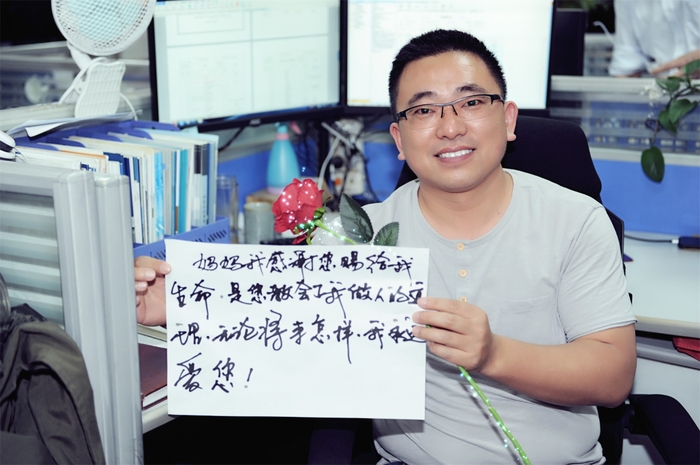 妈妈我感谢您赐给我
生命，是您教会了我做人的道
理，无论将来怎样，我永远
爱您！